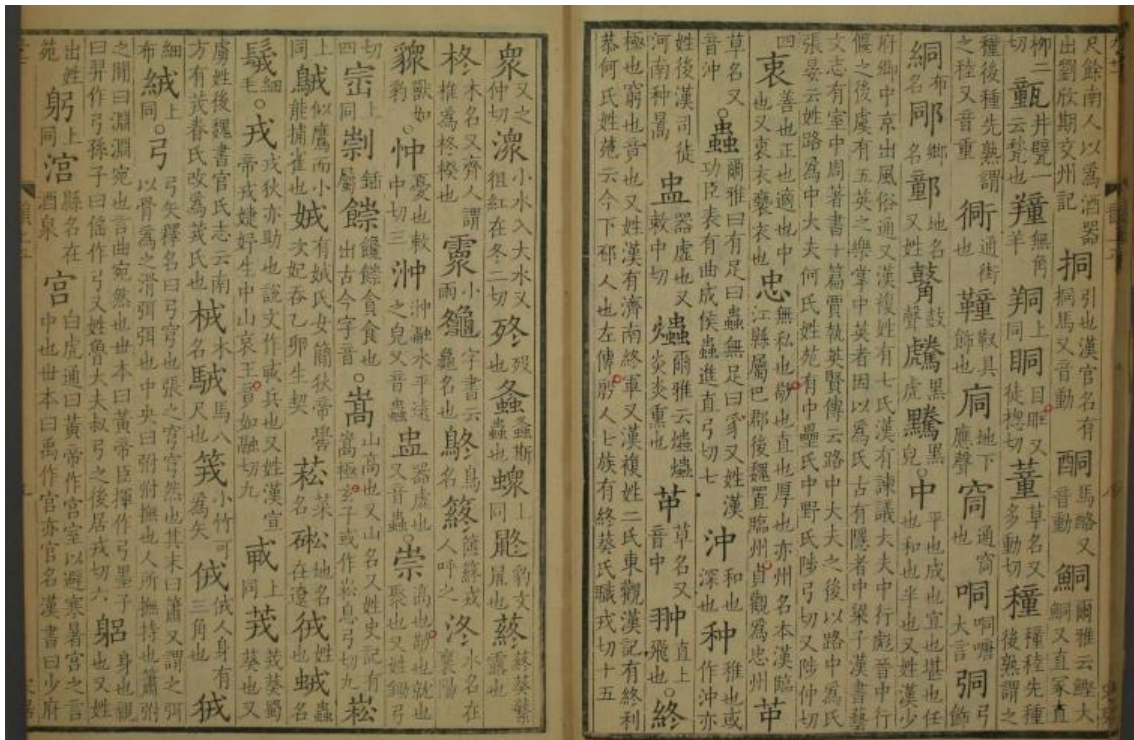 尺餘南人以爲酒器出劉欣期交州記 挏 引也漢官名有挏馬又音動 酮 馬酪又音動 鮦 爾雅云鰹大鮦又直冢直
柳二切 井甓一云甃也 無角羊 上同 眮 目眶又徒揔切 董 草名又多動切 穜 穜稑先種後熟謂之
種後種先熟謂之稑又音重 衕 通街也 鞁具飾也 地下應聲 通窗也 哃 哃嘡大言 弓飾
絧 布名 鄉名 地名又姓 鼓聲 黑虎 黑皃 ○中 平也成也宜也堪也任也和也半也又姓漢少
府卿中京出風俗通又漢複姓有七氏漢有諫議大夫中行彪晉中行偃之後虞有五英之樂掌中英者因以爲氏古有隱者中梁子漢書藝
文志有室中周著書十篇賈執英賢傳云路中大夫之後以路中爲氏張晏云姓路爲中大夫何氏姓苑有中壘氏中野氏陟弓切又陟仲切
四 衷 善也正也適也中也又衷衣褻衣也 忠 無私也敬也直也厚也亦州名本漢臨江縣屬巴郡後魏置臨州貞觀爲忠州 𦬕
草名又音沖 ○蟲 爾雅曰有足曰蟲無足曰豸又姓漢功臣表有曲成侯蟲進直弓切七 沖 和也深也 种 稚也或作沖亦
姓後漢司徒河南种暠 盅 器虛也又敕中切 爞 爾雅云爞爞炎炎熏也 𦬕 草名又音中 翀 直上飛也 ○終
極也窮也竟也又姓漢有濟南終軍又漢複姓二氏東觀漢記有終利恭何氏姓苑云今下邳人也左傳殷人七族有終葵氏職戎切十五
衆 又之仲切 潀 小水入大水又徂紅在冬二切 歾也 螽 螽斯蟲也 上同 豹文鼠也 蔠 蔠葵蘩露也
柊 木名又齊人謂椎爲柊楑也 小雨 字書云龜名也 鴤 鳥名 戎人呼之 泈 水名在襄陽
獸如豹 ○忡 憂也敕中切三 沖瀜水平遠之皃又音蟲 盅 器虛也又音蟲 ○崇 高也敬也就也聚也又姓鋤弓
切四 上同 鍤屬 饞貪食也出古今字音 ○嵩 山高也又山名又姓史記有嵩極玄子或作崧息弓切九 崧
上同 似鷹而小能捕雀也 娀 有娀氏女簡狄帝嚳次妃吞乙卵生契 菘 菜名 硹 地名在遼 姓也 蟲名
細毛 ○戎 戎狄亦助也說文作𢦦兵也又姓漢宣帝戎婕妤生中山哀王竟如融切九 上同 茙 茙葵蜀葵也又
虜姓後魏書官氏志云南方有茙眷氏改爲茙氏也 木名 駥 馬八尺也 小竹可爲矢 人身有三角也
細布 絨 上同 ○弓 弓矢釋名曰弓穹也張之穹穹然也其末曰簫又謂之弭以骨爲之滑弭弭也中央曰弣弣撫也人所撫持也簫弣
之閒曰淵淵宛也言曲宛然也世本曰黃帝臣揮作弓墨子曰羿作弓孫子曰倕作弓又姓魯大夫叔弓之後居戎切六 躳 身也親也又姓
出姓苑 躬 上同 涫 縣名在酒泉 宮 白虎通曰黃帝作宮室以避寒暑宮之言中也世本曰禹作宮亦官名漢書曰少府